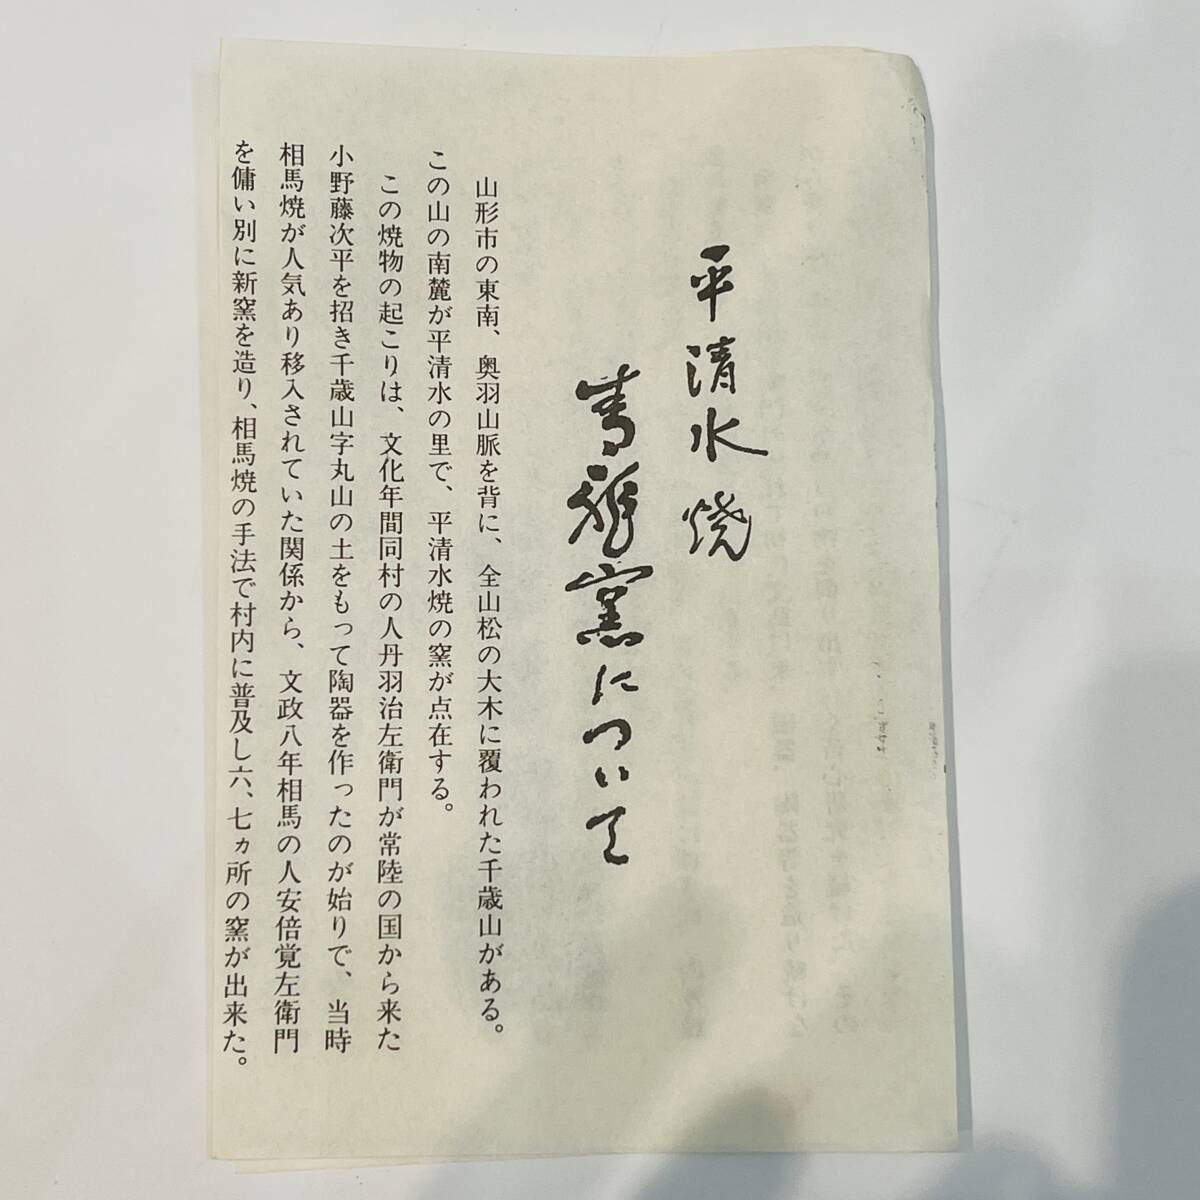 平清水焼
青龍窯について
山形市の東南、奥羽山脈を背に、全山松の大木に覆われた千歳山がある。
この山の南麓が平清水の里で、平清水焼の窯が点在する。
この焼物の起こりは、文化年間同村の人丹羽治左衛門が常陸の国から来た
小野藤次平を招き千歳山字丸山の土をもって陶器を作ったのが始りで、当時
相馬焼が人気あり移入されていた関係から、文政八年相馬の人安倍覚左衛門
を傭い別に新窯を造り、相馬焼の手法で村内に普及し六、七ヵ所の窯が出来た。